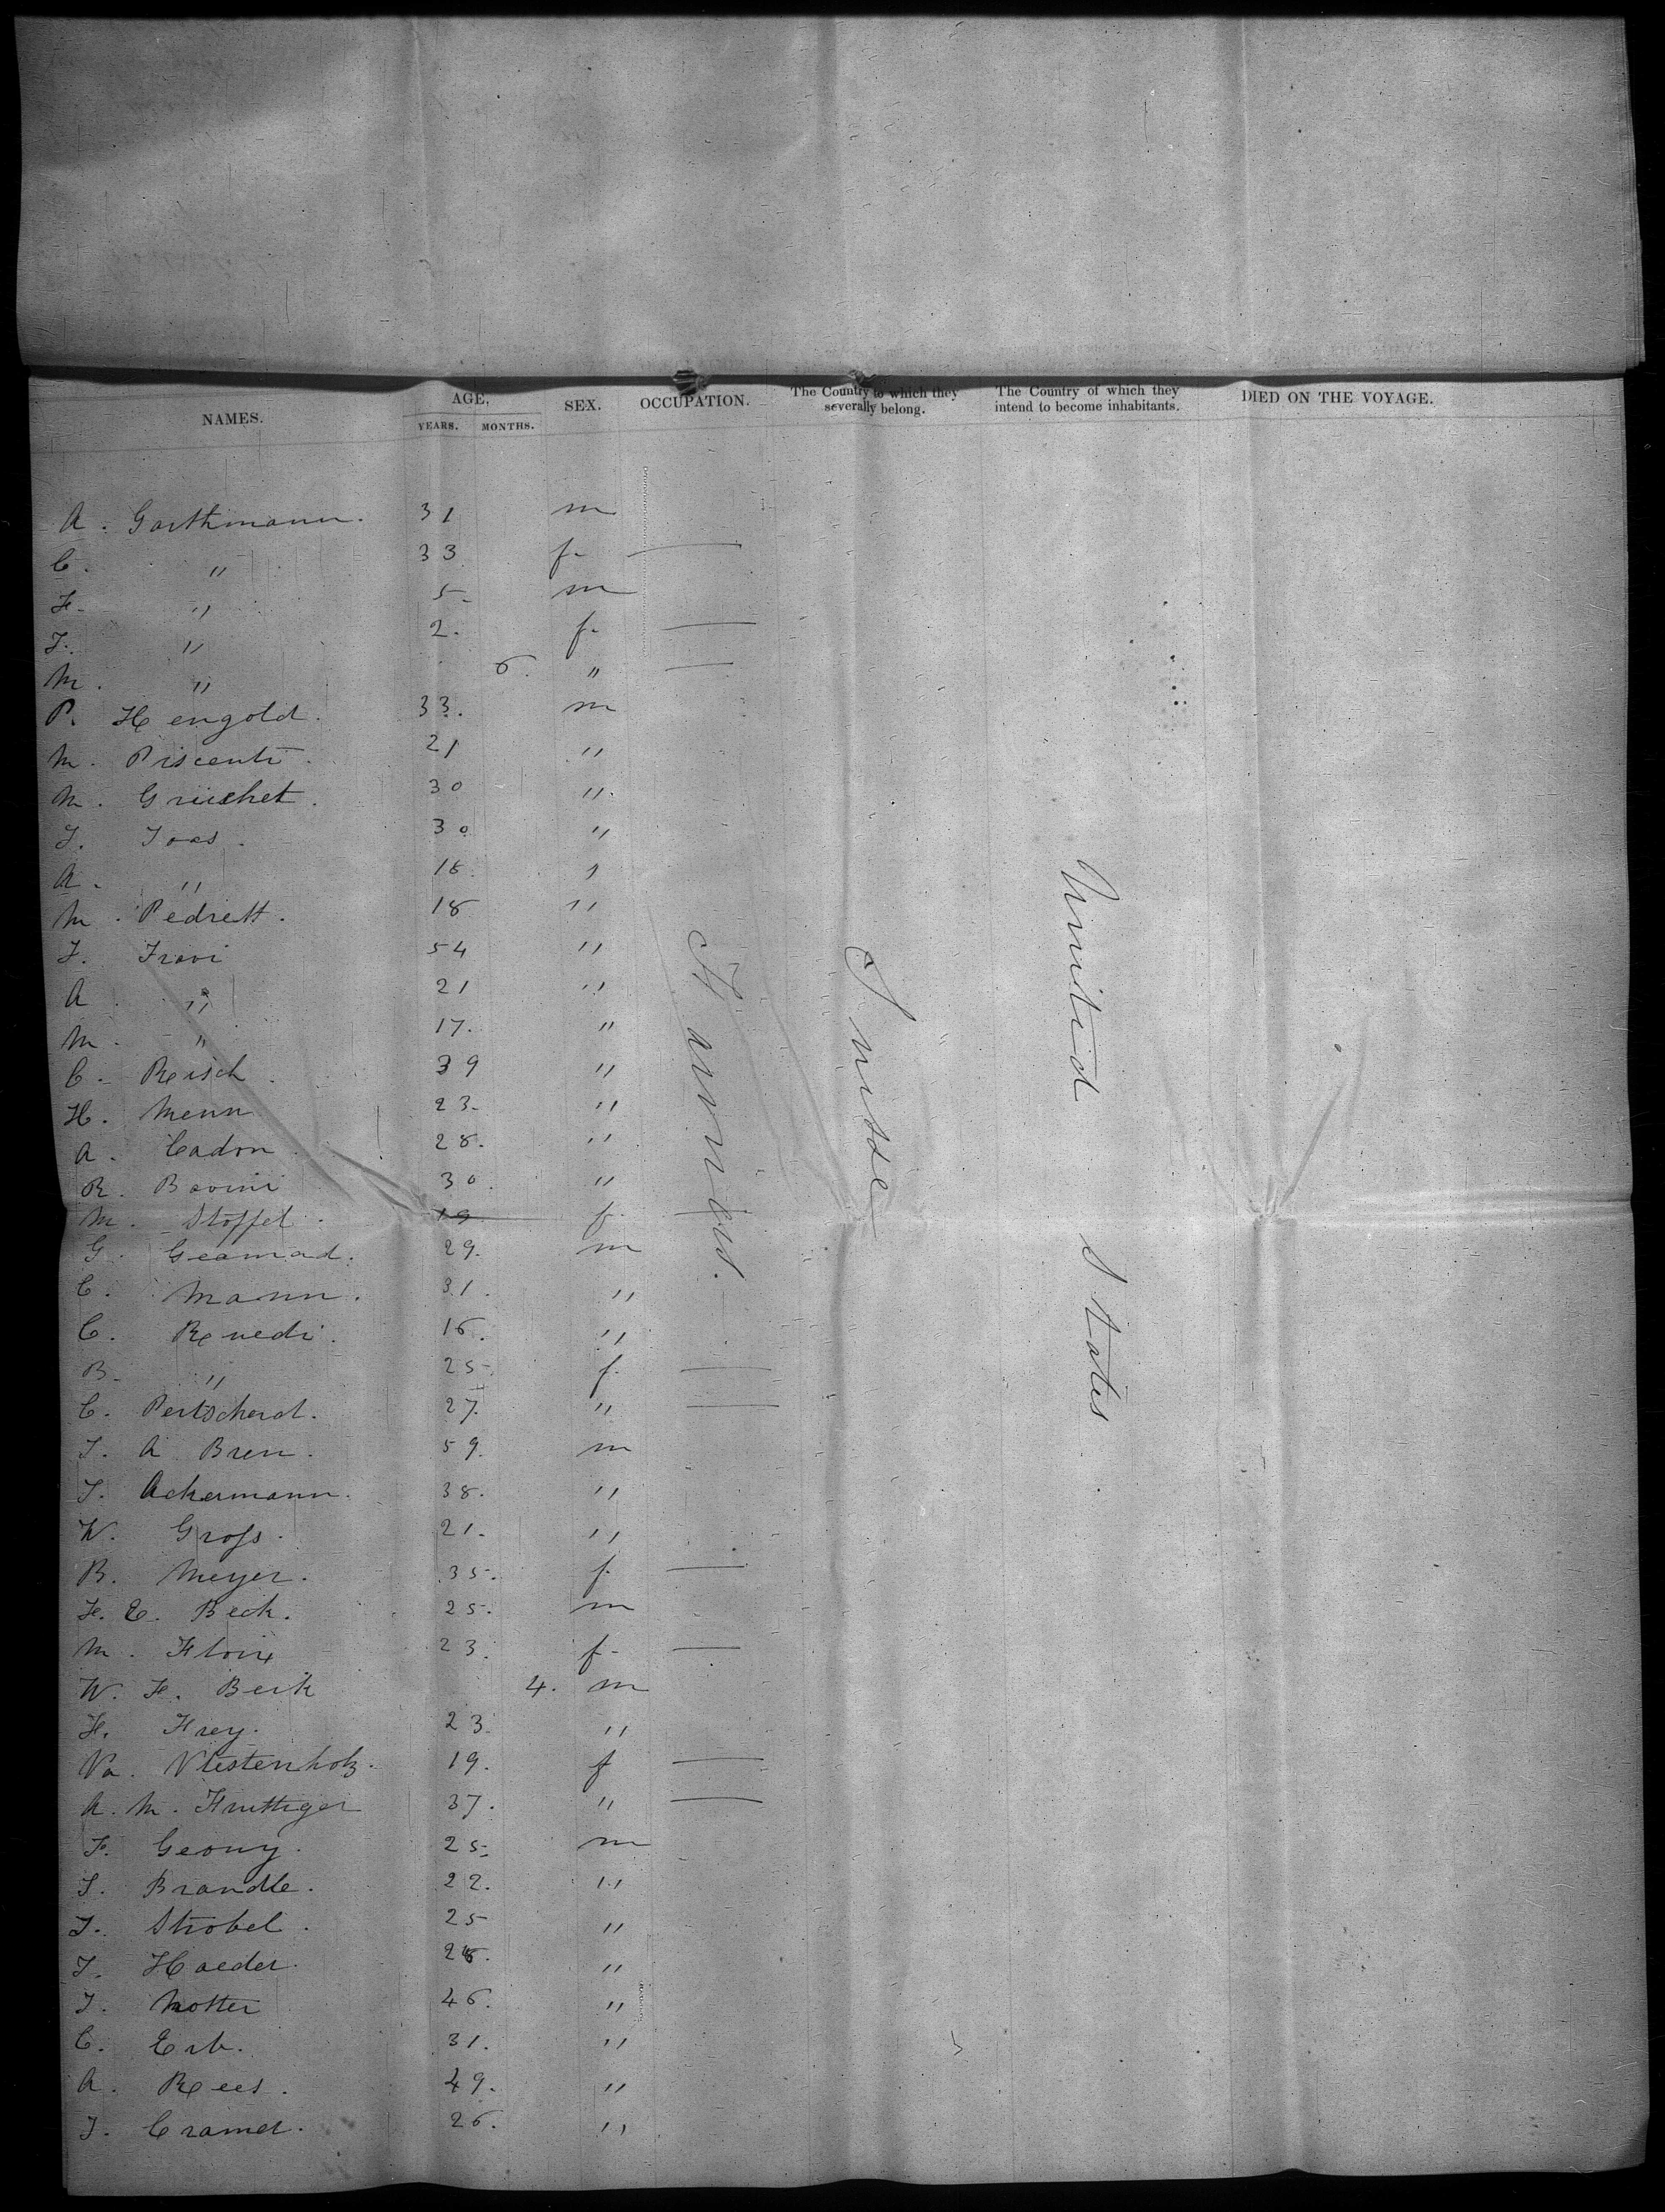 NAMES. AGE, SEX. OCCUPATION. The Country to which they severally belong. The Country of which they intend to become inhabitants. DIED ON THE VOYAGE.
YEARS. MONTHS.
A. Garthmann. 31 m
C. " 33 f- —
F- " 5- m
J. " 2. f- —
M. " 6. " —
P. Hengold. 33. m
M. Piscenti. 21 "
M. Gruschet. 30 "
J. Joas. 30 "
A. " 18. "
M. Pedrett. 18 "
J. Travi 54 "
A. " 21 "
M. " 17. "
C. Reisch. 39 "
H. Menn 23. "
A. Cadon. 28. "
R. Bovini 30. "
M. Stoffel. 19 f.
G. Geamad. 29. m
C. Mann. 31. "
C. Renedi. 16. "
B. " 25- f. —
C. Pertscherat. 27. " —
J. A Bren. 59. m
J. Ackermann. 38. "
W. Gross. 21. "
B. Meyer. 35-. f- —
F. E. Beck. 25. m
M. Floix 23. f- —
W. F. Beck 4. m
F. Frey. 23. "
Va. Vlestenholz. 19. f —
A. M. Fruttiger 37. " —
F. Geony. 25. m
J. Brandle. 22. "
J. Strobel. 25 "
J. Haeder. 28. "
J. Motter 46. "
C. Erb. 31. "
A. Rees. 49. "
J. Cramer. 26. "
Farmers.
Suisse
United States